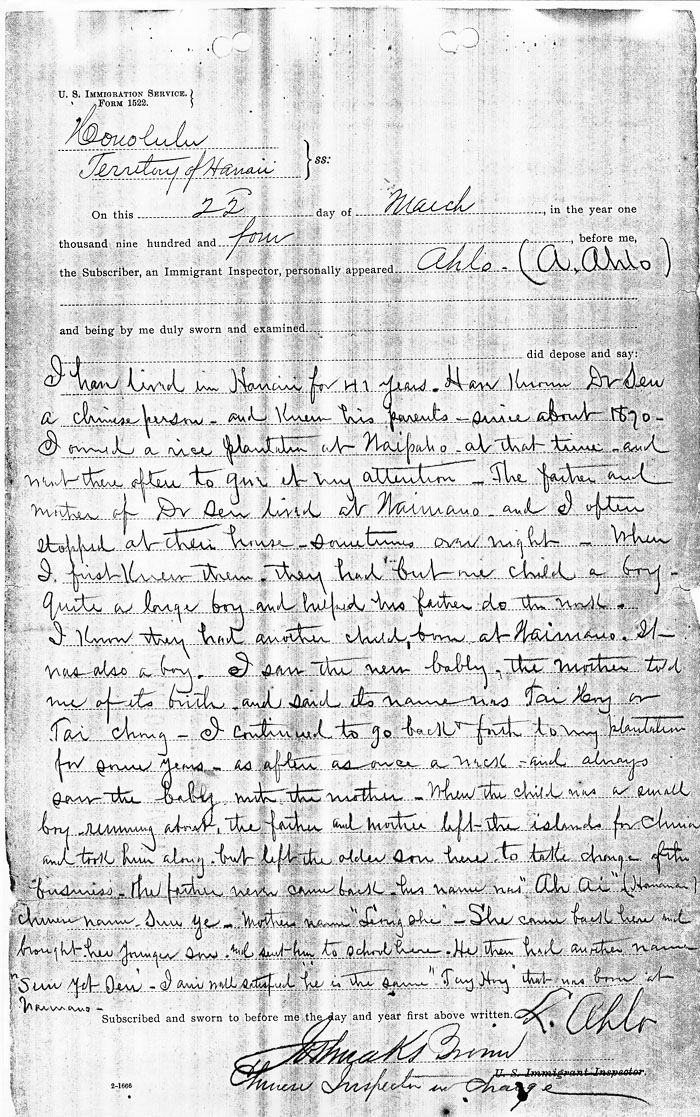 U. S. IMMIGRATION SERVICE.
FORM 1522.
Honolulu
Territory of Hawaii
ss:
On this 22 day of March, in the year one
thousand nine hundred and four, before me,
the Subscriber, an Immigrant Inspector, personally appeared Ahlo. (A. Ahlo)
and being by me duly sworn and examined
did depose and say:
I have lived in Hawaii for 41 years. Have Known Dr Sen
a chinese person - and Knew his parents - since about 1870 -
I owned a rice plantation at Waipaho - at that time - and
went there often to give it my attention - The father and
mother of Dr Sen lived at Waimano - and I often
stopped at their house - sometimes over night - When
I first Knew them - they had but one child a boy -
quite a large boy and helped his father do the work.
I Know they had another child, born at Waimano. It
was also a boy. I saw the new babby, the mother told
me of its birth and said its name was Tai Hoy or
Tai Chong - I continued to go back & forth to my plantation
for some years - as often as once a week - and always
saw the babby with the mother - When the child was a small
boy running about, the father and mother left the islands for China
and took him along - but left the older son here to take charge of the
business - the father never came back - his name was "Ah Ai" (Hawaiian)
chinese name Sun ye - Mothers name "Leong She" - She came back here and
brought her younger son and sent him to school here. He then had another name
"Sun Yet Sen" - I am well satisfied he is the same "Tay Hoy" that was born at
Waimano -
L. Ahlo
Subscribed and sworn to before me the day and year first above written.
Joshua K. Brown
U. S. Immigrant Inspector.
Chinese Inspector in Charge
2-1666